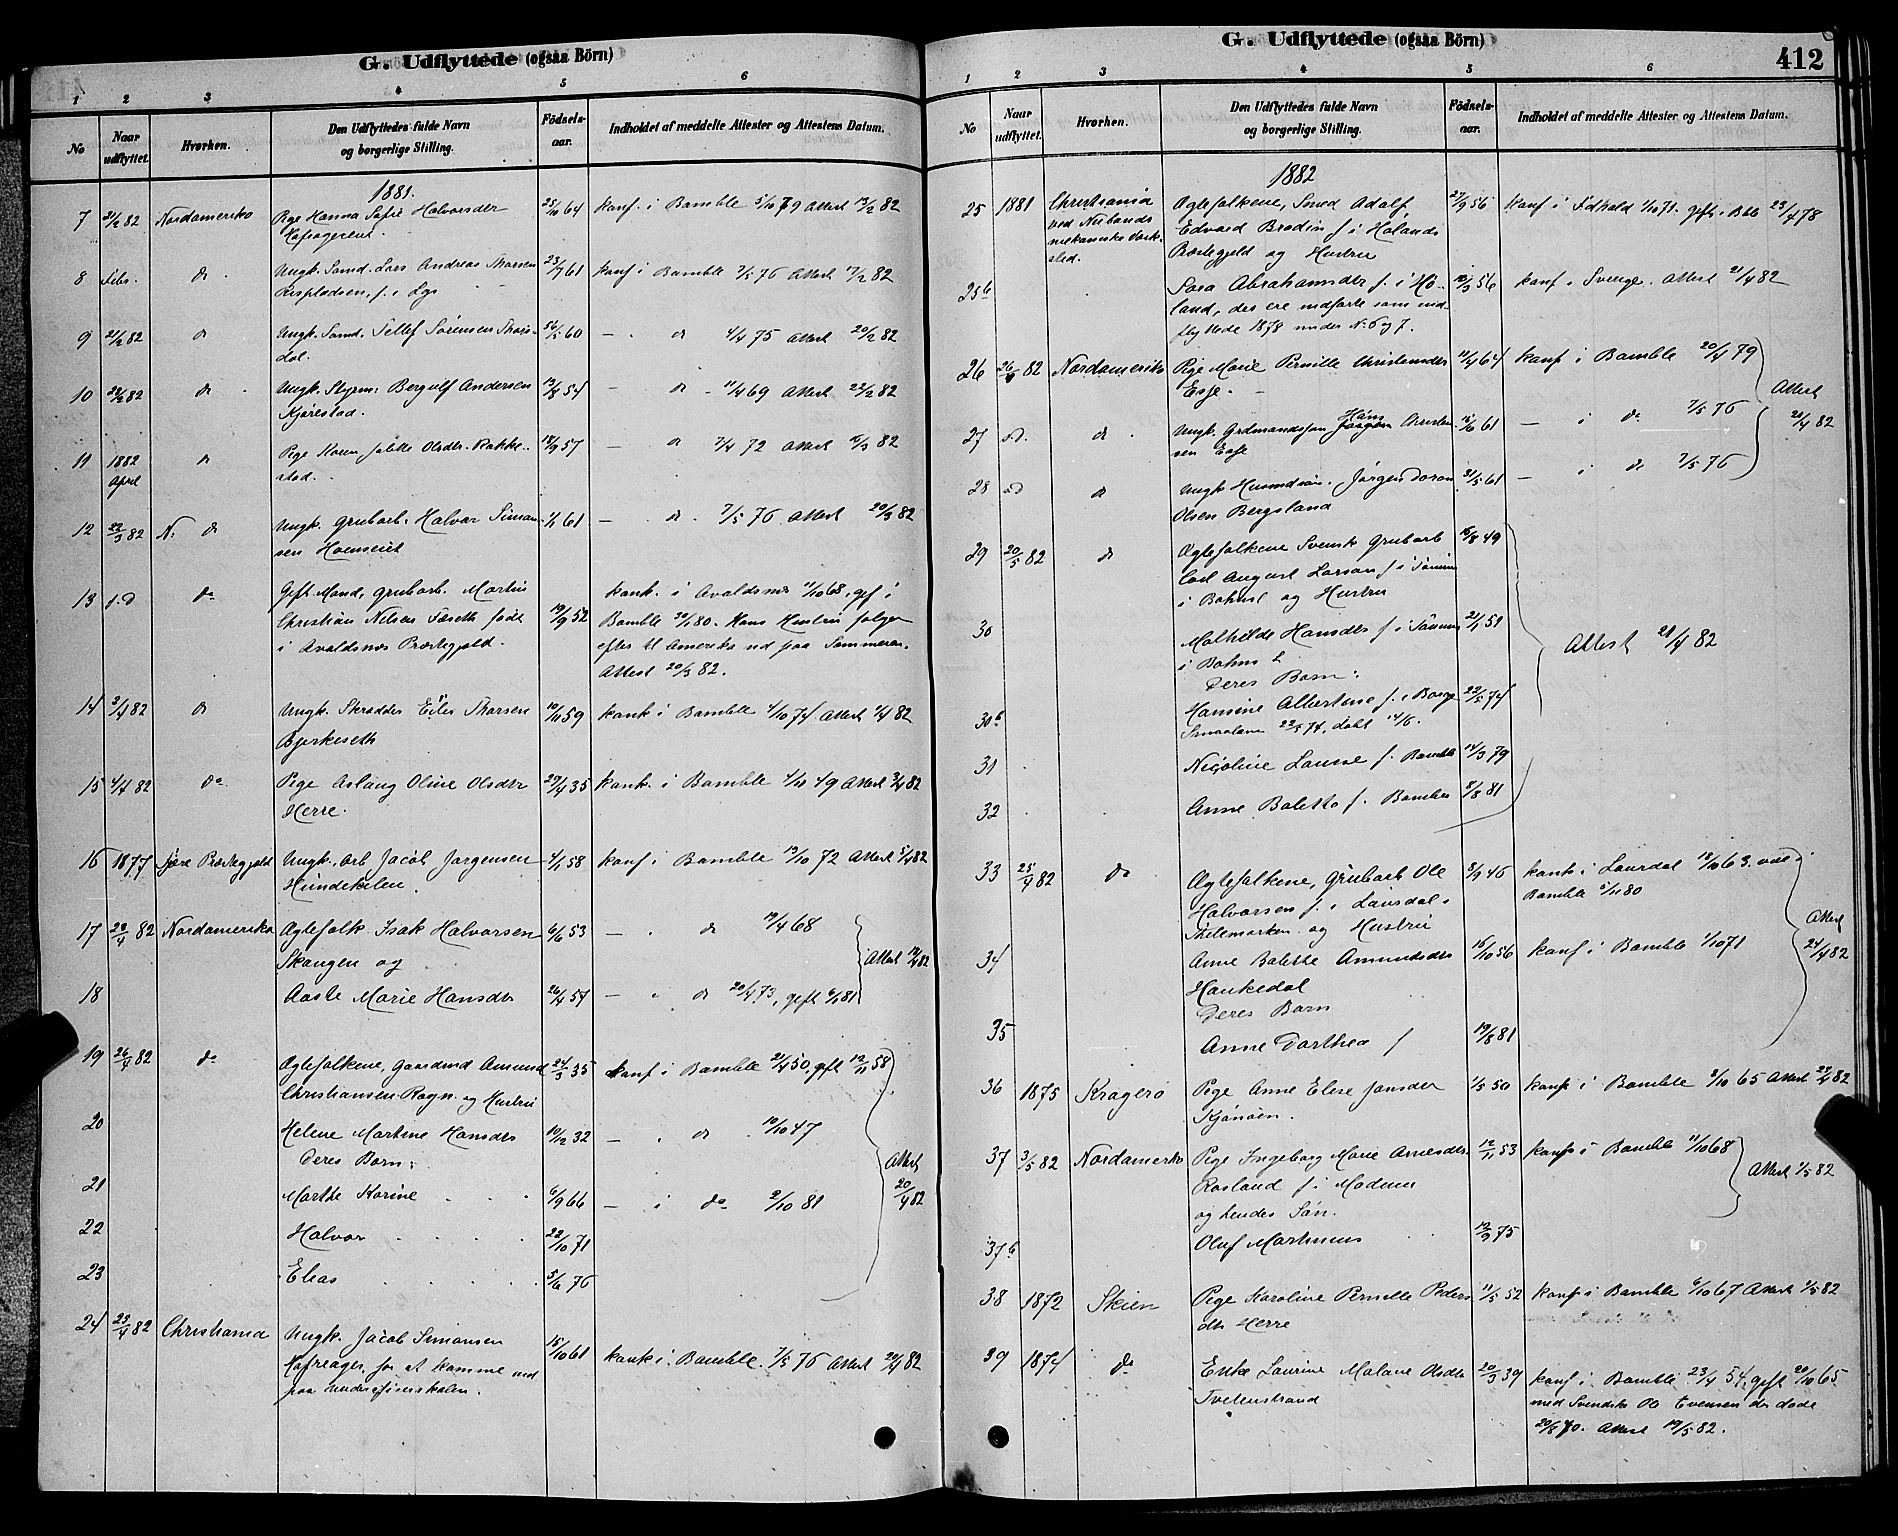 G. Udflyttede (ogsaa Börn)
1 2 3 4 5 6
No Naar udflyttet. Hvorhen. Den Udflyttedes fulde Navn og borgerlige Stilling. Födsels-aar. Indholdet af meddelte Attester og Attestens Datum.
1881.
7 21/2 82 Nordamerika Pige Hanna Sofie Halvorsdtr 25/10 64 konf. i Bamble 5/10 79 Attest 13/2 82
8 Febr. do Ungk. Sømd. Lars Andreas Thorsen 23/7 61 konf i Bamble 7/5 76 Attest 17/2 82
9 21/2 82 do Ungk. Sømd. Tellef Sørensen Thors-
dal. /60 — do 4/4 75 Attest 20/2 82
10 24/2 82 do Ungk. Styrm: Bergulf Andersen 54 — do 11/4 69 Attest 22/2 82
Kjørestad.
11 1882 April do Pige Karen Jolette Olsdtr. Rakke- 18/9 57 — do 7/4 72 Attest 15/3 82
stad.
12 22/3 82 N. do Ungk. Grubarb. Halvor Simon- 1/1 61 — do 7/5 76 Attest 20/3 82
sen
13 s.d do Gift Mand, grubarb. Martin konf. i Avaldsnæs 11/10 68, gift i
Christian Nilsen Fæseth født 19/9 52 Bamble 30/1 80. Hans Hustru følger
i Avaldsnæs Præstegjeld. efter til Amerika ud paa Sommeren.
Attest 20/3 82.
14 3/4 82 do Ungk. Skrædder Eiler Thorsen 10/10 59 konf. i Bamble 4/10 74 Attest 1/4 82
Bjerkeseth
15 4/4 82 do Pige Aslaug Oline Olsdtr 29/4 35 konf. i Bamble 4/11 49 Attest 3/4 82
Herre.
16 1877 Præstegjeld Ungk. Arb Jacob Jørgensen 4/1 58 konf i Bamble 13/10 72 Attest 5/4 82
Hundekilen.
17 20/4 82 Nordamerika Ægtefolk Isak Halvorsen 6/6 53 — do 19/4 68
Skaugen og Attest 19/4 82
18 Aaste Marie Hansdtr 26/4 57 — do 20/4 73, gift 6/1 81
19 26/4 82 do Ægtefolkene, Gaardmd Amund 24/3 35 konf i Bamble 21/4 50, gift 12/11 58
Christiansen Rogn. og Hustru
20 Helene Martine Hansdtr 10/12 32 — do 10/10 47
Deres Børn: Attest
21 Marthe Karine 6/9 66 — i do 2/10 81 20/4 82
22 Halvor 22/10 71
23 Elias 5/6 76
24 23/4 82 Christiania Ungk. Jacob Simonsen 15/10 61 konf i Bamble 7/5 76 Attest 20/4 82
Hafreager, for at komme ind
paa Underofficersskolen.
G. Udflyttede (ogsaa Börn) 412
1 2 3 4 5 6
No Naar udflyttet. Hvorhen. Den Udflyttedes fulde Navn og borgerlige Stilling. Födsels-aar. Indholdet af meddelte Attester og Attestens Datum.
1882
25 1881 Christiania Ægtefolkene, Smed Adolf 27/9 56 konf i Idhold 1/10 71. gift. Bbl 23/4 78
ved Nylands Edvard Brodin f i Hølands
mekaniske Værk- Præstegjeld og Hustru
sted.
25b Sara Abrahamsdtr f. i Hø- /3 56 konf i Sverige. Attest 21/4 82
land, der ere indførte som ind-
flyttede 1878 under No 6 og 7.
26 26/4 82 Nordamerika Pige Marie Pernille Christensdtr 11/4 64 konf i Bamble 20/4 79
Esje. Attest
27 s.d. do Ungk. Grdmandssøn Hans Jørgen Christen- 61 — i do 7/5 76 21/4 82
sen Esje
28 s.d do Ungk Husmdsøn. Jørgen 31/5 61 — i do 7/5 76
Olsen Bergsland
29 20/5 82 do Ægtefolkene Svensk Grubarb /8 49
Carl August Larson f i
i Bahus og Hustru
30 Mathilde Hansdtr f i 21/1 51
i Bahus L Attest 21/4 82
Deres Børn:
30b Hansine Albertine f. i Borge 22/5 74
Smaalene 22/5 74, døbt 14/6.
31 Nicoline Lausse f. Bamble 14/3 79
32 Anne Bolette f. Bamble 8/8 81
33 25/4 82 do Ægtefolkene, Grubarb Ole 8/9 46 konf i Laurdal 18/10 63. viet i
Halvorsen f. i Laurdal i Bamble 5/11 80
Thelemarken og Hustru Attest
34 Anne Bolette Amundsdtr 16/10 56 konf i Bamble 1/10 71 24/4 82
Haukedal
Deres Børn
35 Anne Dorthea f 19/8 81
36 1875 Kragerø Pige Anne Elise Jansdtr 1/5 50 konf i Bamble 8/10 65 Attest 29/4 82
Kjønøen.
37 3/5 82 Nordamerika Pige Ingeborg Marie Arnesdtr 12/11 53 konf i Bamble 11/10 68
Rosland f i Modum Attest 1/5 82
og hendes Søn.
37b Oluf Martinius 12/9 75
38 1872 Skien Pige Karoline Pernille Peders 11/5 52 konf i Bamble 6/10 67 Attest 1/5 82
dtr Herre
39 1874 do Enke Laurine Malane Olsdtr 20/3 39 konf i Bamble 23/4 54, gift 20/10 65
Tvetenstrand med Ol Evensen der døde
20/8 70. Attest 19/5 82.